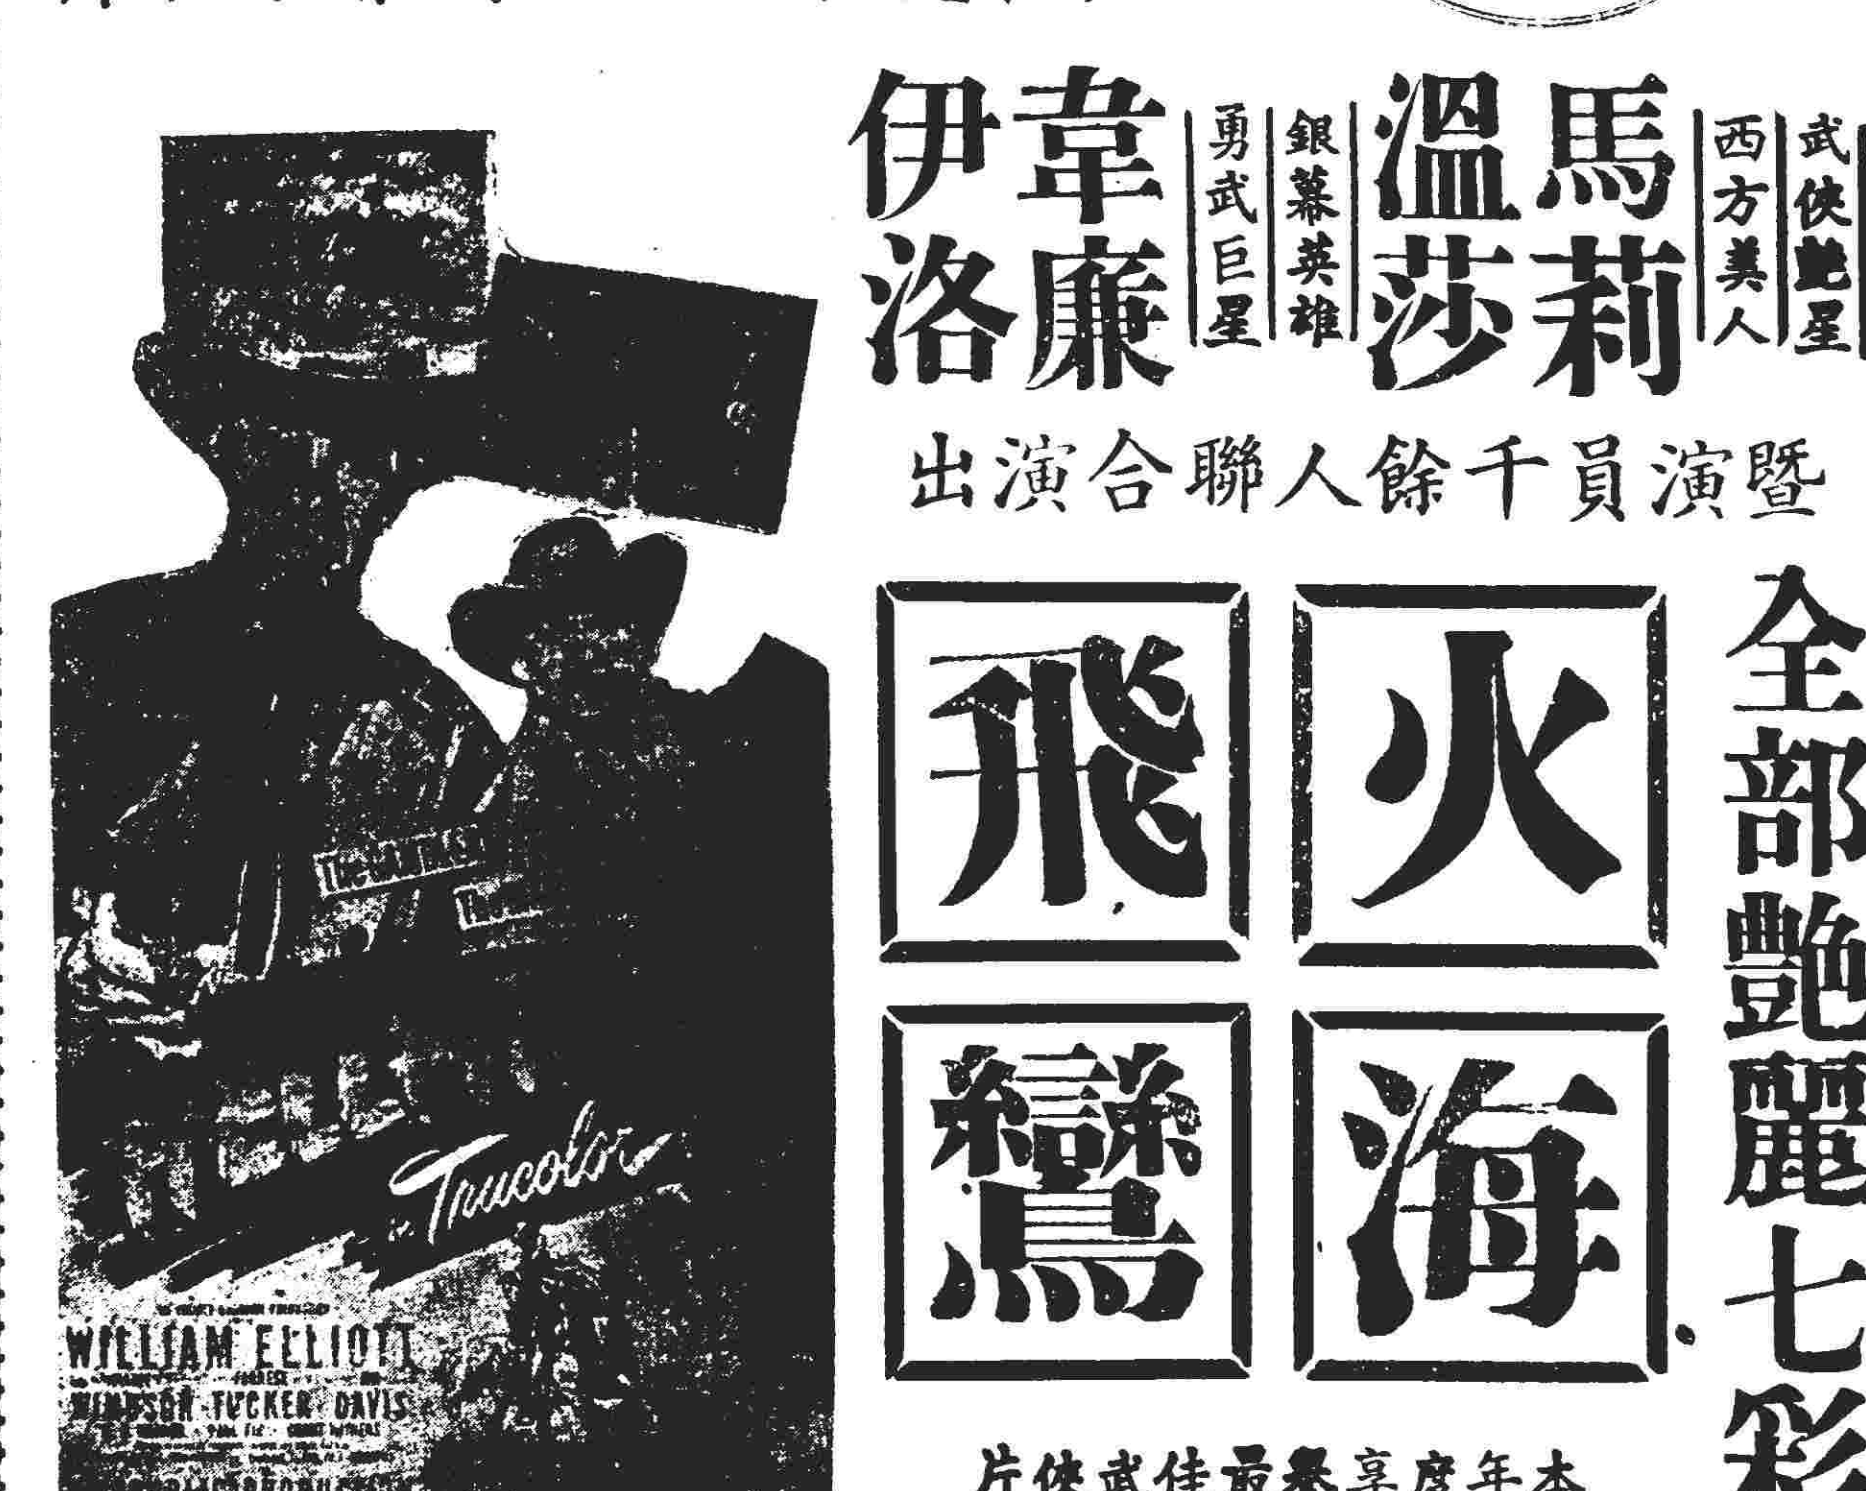 武俠艷星
西方美人
馬莉
溫莎
銀幕英雄
勇武巨星
韋廉
伊洛
暨演員千餘人聯合演出
全部艷麗七彩
火海
飛鸞
本年度享譽最佳武俠片
Trucolor
WILLIAM ELLIOTT
WINDSOR · TUCKER · DAVIS